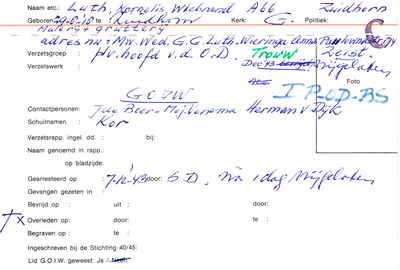 Naam etc.: Luth, Kornelis, Wichrand A66 Zuidhorn
Geboren: 29-0-10 te Zuidhorn Kerk: G. Politiek:
adres nu: Mw. Wed. G.G. Luth-Wieringa Anna
Verzetsgroep : Plv. hoofd v.d. O.D. Trouw Zeist.
Verzetswerk : Dec 43 Vrijgelaten
GOIW Foto
I P-OD-BS
Contactpersonen: Beer- Mej. Venema Herman v Dijk
Schuilnamen : Kor
Verzetsrapp. ingel. dd. : bij:
Naam genoemd in rapp.:
op bladzijde:
Gearresteerd op : 7-12-43 door: SD. Na 1 dag vrijgelaten
Gevangen gezeten in :
Bevrijd op : uit : door:
Overleden op: door: te :
Begraven op : te :
Ingeschreven bij de Stichting 40/45:
Lid G.O.I.W. geweest: Ja / Neen